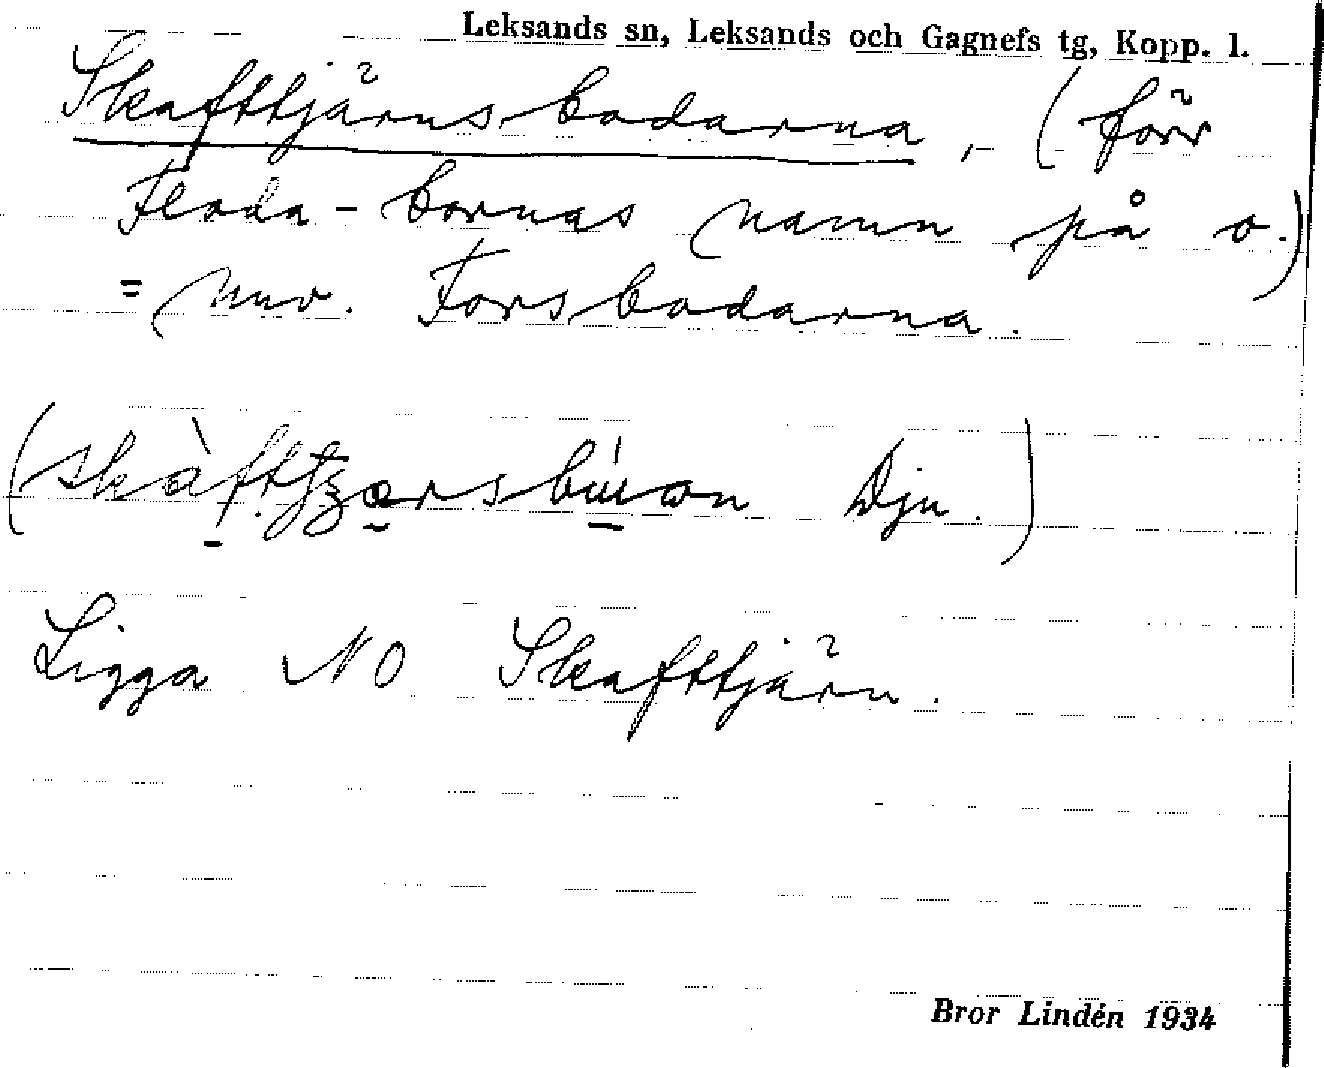 Leksands sn, Leksands och Gagnefs tg, Kopp. l.
Skafttjärnsbodarna, - (förr
Floda-bornas namn på o.)
= nuv. Forsbodarna.
Dju.)
Ligga NO Skafttjärn.
Bror Lindén 1934